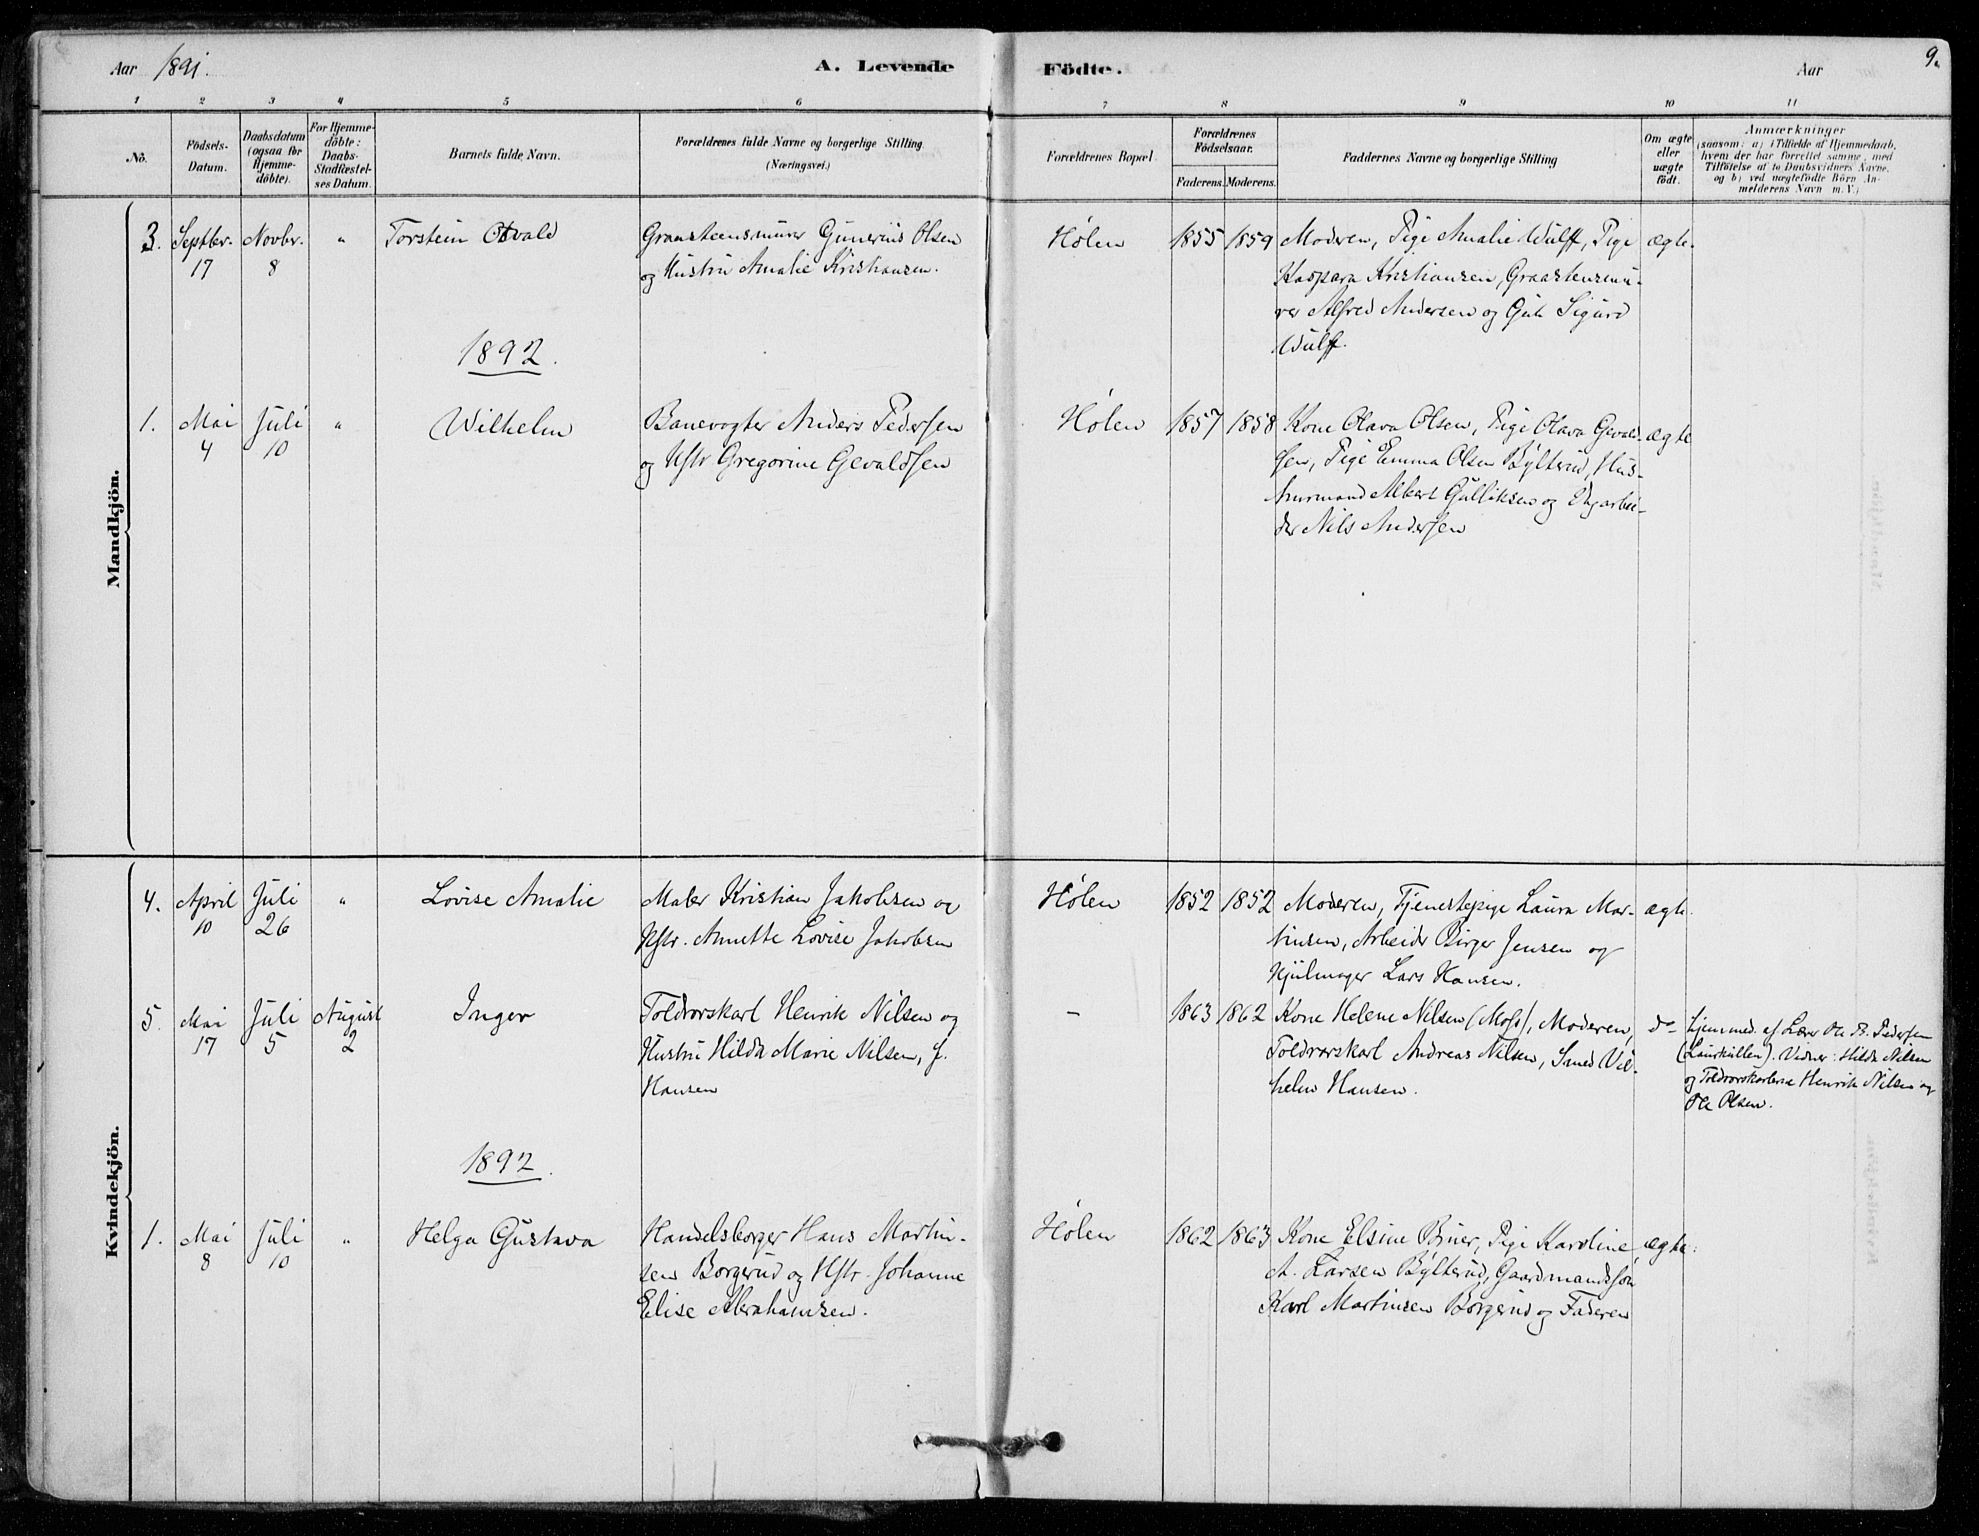 Aar 1891.
A. Levende
Födte.
Aar
9.
1 2 3 4 5 6 7 8 9 10 11
No.
Födsels-
Datum.
Daabsdatum
(ogsaa for
Hjemme-
döbte).
For Hjemme-
döbte:
Daabs-
Stadfæstel-
ses Datum.
Barnets fulde Navn.
Forældrenes fulde Navne og borgerlige Stilling
(Næringsvei.)
Forældrenes Bopæl.
Forældrenes
Födselsaar.
Faderens. Moderens.
Faddernes Navne og borgerlige Stilling
Om ægte
eller
uægte
födt.
Anmærkninger
(saasom: a) i Tilfælde af Hjemmedaab,
hvem der har forrettet samme, med
Tilföielse af to Daabsvidners Navne,
og b) ved uægtefödte Börn An-
melderens Navn m. V.)
Mandkjön.
3. Septbr. Novbr. " Torstein Otvald Graasteensmurer Gunerius Olsen Hølen 1855 1859 Moderen, Pige Amalie Wulff, Pige ægte.
17 8 og Hustru Amalie Kristiansen. Kaspara Kristiansen, Graastensmu-
rer Alfred Andersen og Gut Sigurd
Wulff.
1892.
1. Mai Juli " Wilhelm Banevogter Anders Pedersen Hølen 1857 1858 Kone Olava Olsen, Pige Olava Gevald- ægte
4 10 og Hstr Gregorine Gevaldsen sen, Pige Emma Olsen Bylterud, Hus-
murmand Albert Gulliksen og Ungarbei-
der Nils Andersen
Kvindekjön.
4. April Juli " Lovise Amalie Maler Kristian Jakobsen og Hølen 1852 1852 Moderen, Tjenestepige Laura Mar- ægte.
10 26 Hstr. Annette Lovise Jakobsen tinsen, Arbeider Birger Jensen og
Hjulmager Lars Hansen.
5. Mai Juli August Inger Toldrorskarl Henrik Nilsen og - 1863 1862 Kone Helene Nilsen (Moss), Moderen, do Hjemmed. af Lærer Ole P. Pedersen
17 5 2 Hustru Hilda Marie Nilsen, f. Toldrorskarl Andreas Nilsen, Smed Vil- (Laurkullen). Vidner: Hilda Nilsen
Hansen helm Hansen. og Toldrorskarlene Henrik Nilsen og
Ole Olsen.
1892.
1. Mai Juli " Helga Gustava Handelsborger Hans Martin- Hølen 1862 1863 Kone Elsine Bruer, Pige Karoline ægte.
8 10 sen Borgerud og Hstr. Johanne A. Larsen Bylterud, Gaardmandssøn
Elise Abrahamsen. Karl Martinsen Borgerud og Faderen